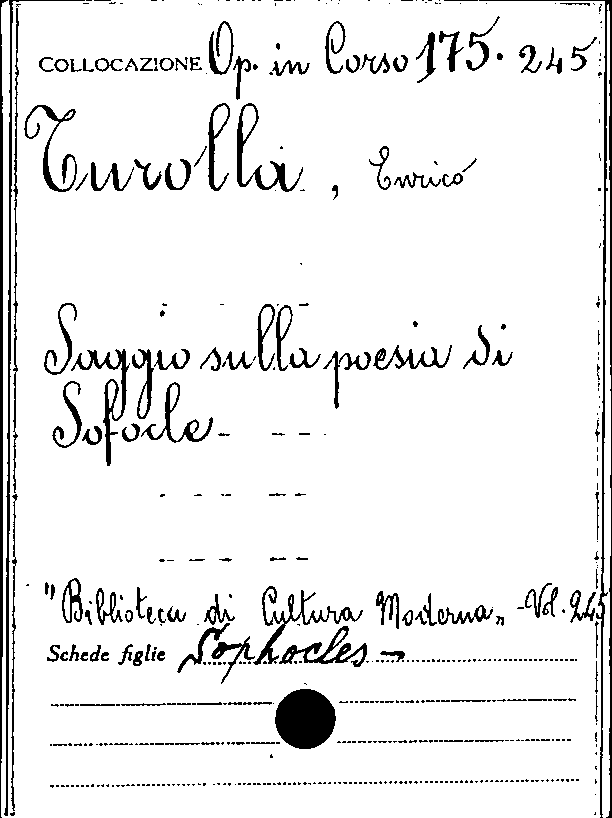 COLLOCAZIONE Op. in Corso 175. 245
Turolla, Enrico
Saggio sulla poesia di
Sofocle
"Biblioteca di Cultura Moderna„ - Vol. 245
Schede figlie Sophocles -